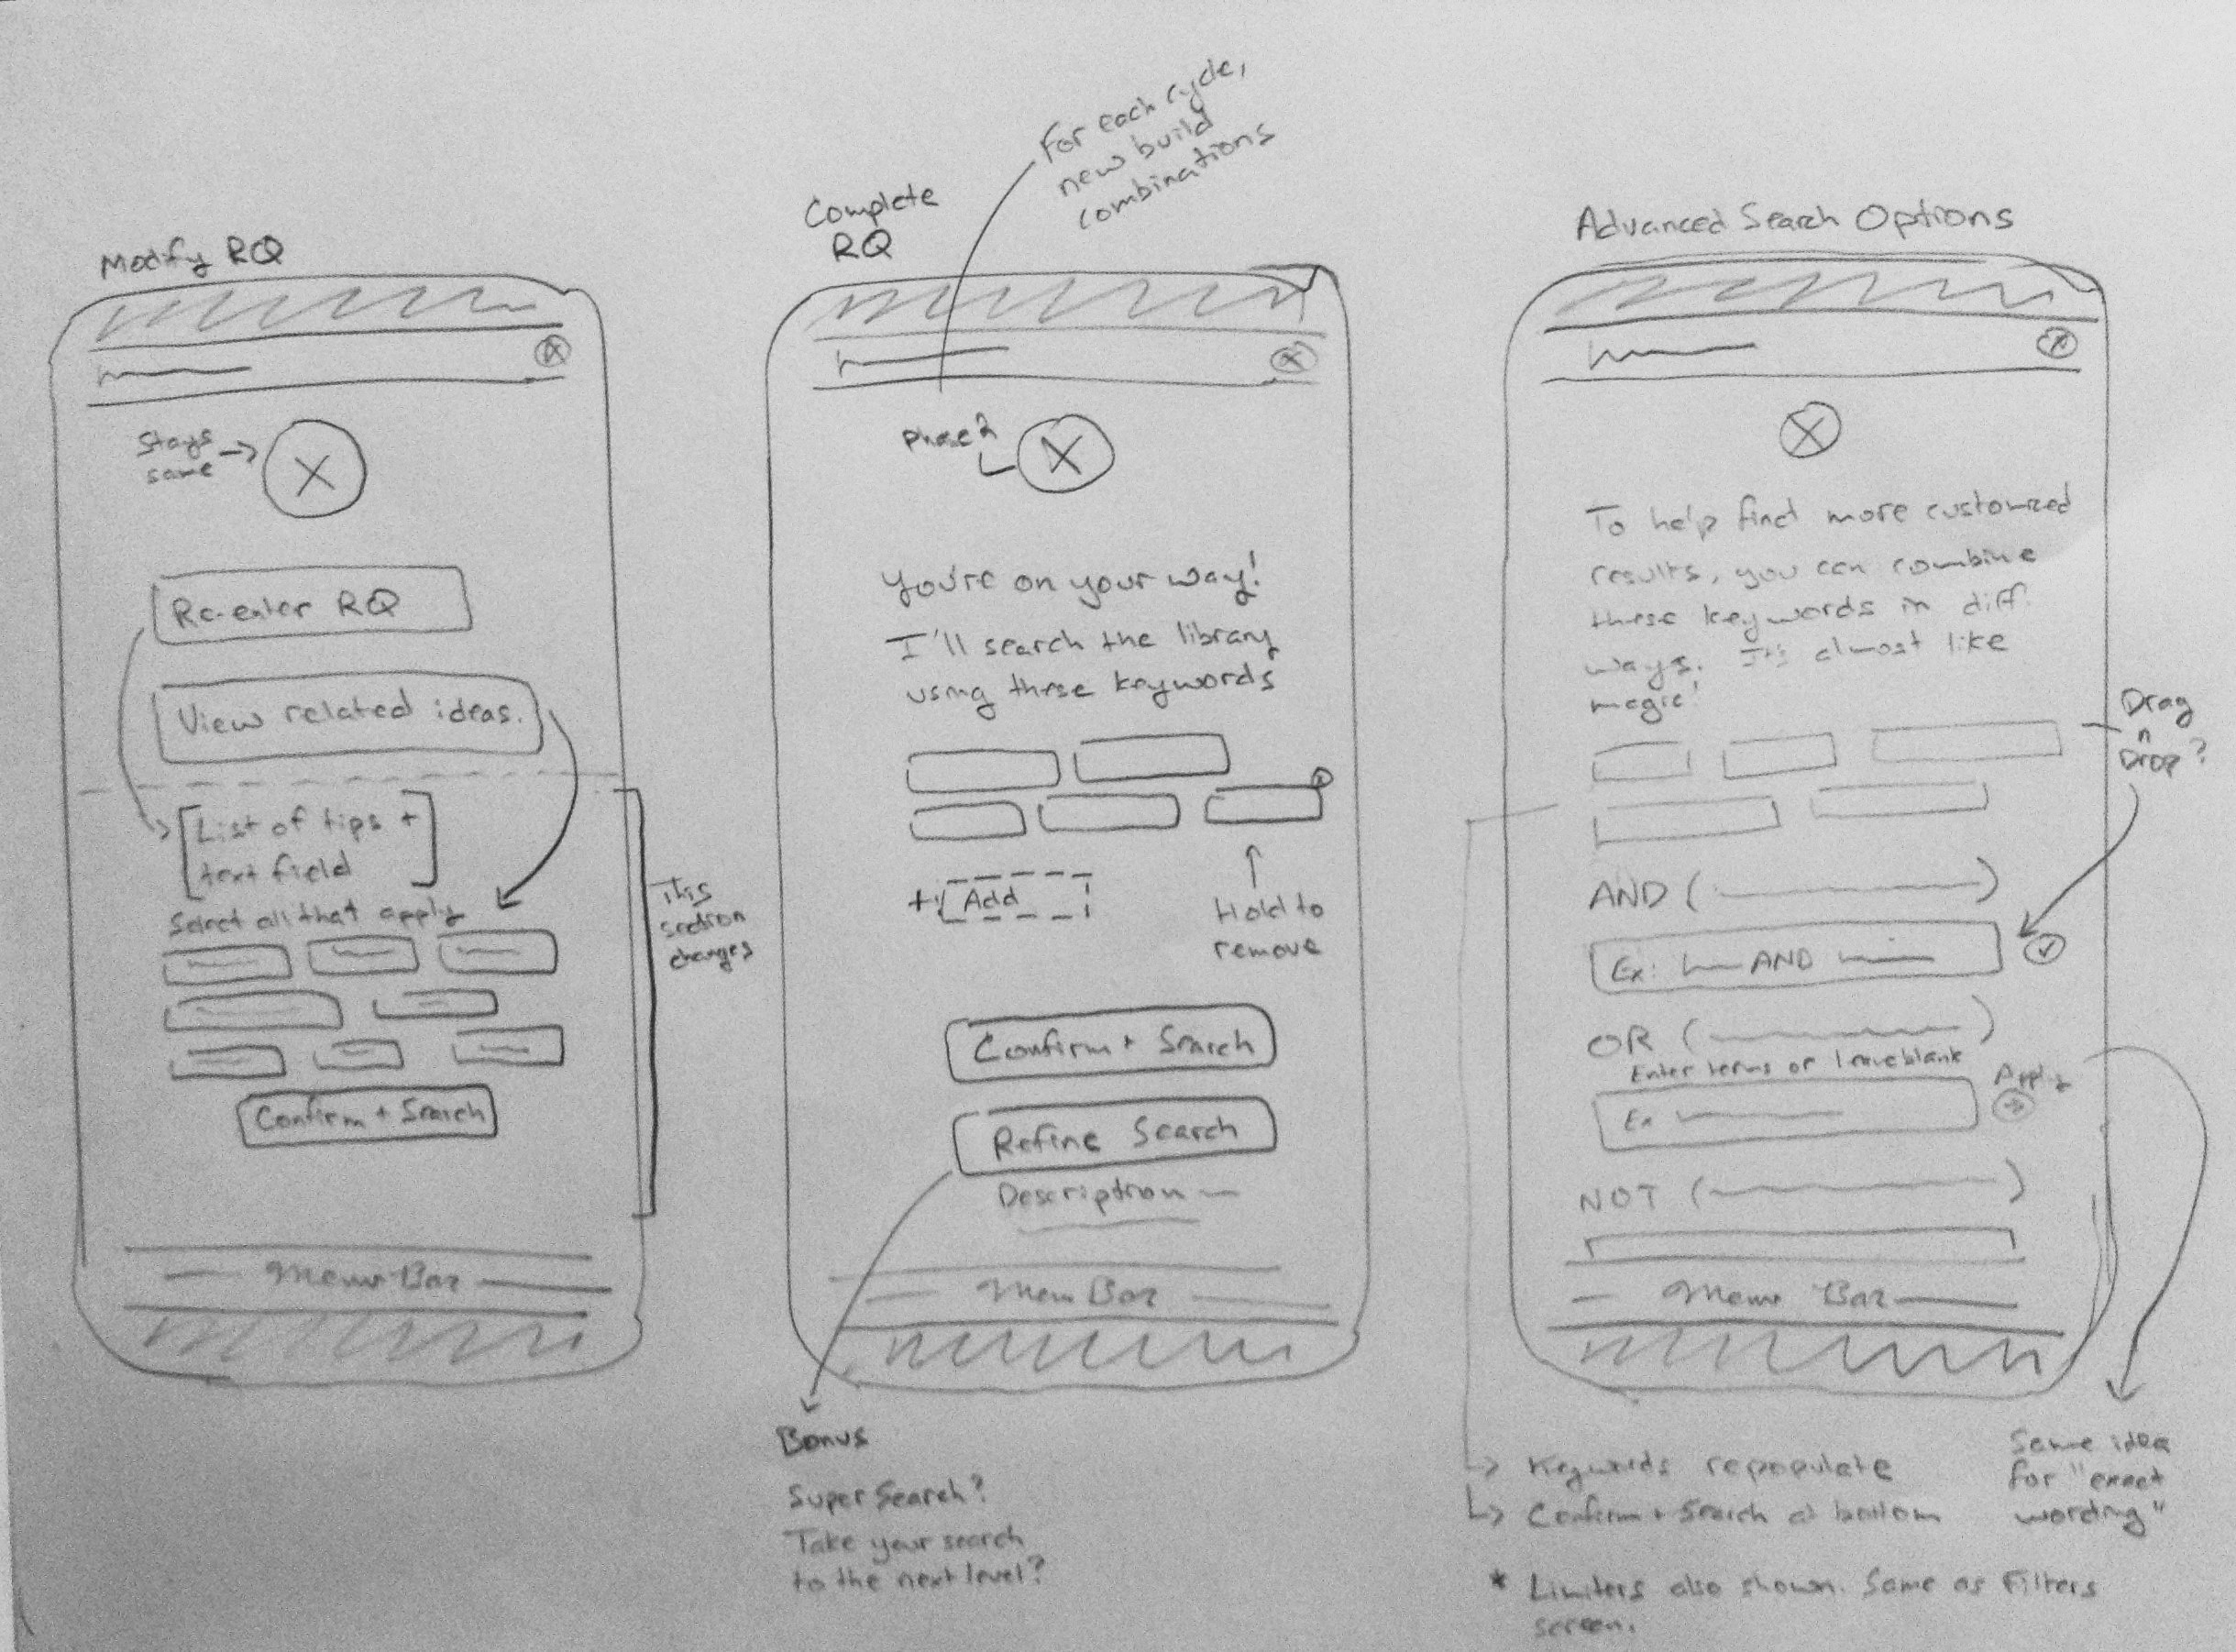 Modify RQ
Stays
same
Re-enter RQ
View related ideas.
List of tips +
text field
Select all that apply
Confirm + Search
This
section
changes
Menu Bar
Complete
RQ
For each cycle,
new build
combinations
Phase 2
You're on your way!
I'll search the library
using these keywords
+ Add
Hold to
remove
Confirm + Search
Refine Search
Description
Menu Bar
Bonus
Super Search?
Take your search
to the next level?
Advanced Search Options
To help find more customized
results, you can combine
these keywords in diff.
ways. It's almost like
magic!
Drag
n
Drop?
AND ( )
Ex: AND
OR ( )
Enter terms or leave blank
Apply
Ex
NOT ( )
Menu Bar
Keywords repopulate
Confirm + Search at bottom
Same idea
for "exact
wording"
* Limiters also shown. Same as Filters
screen.